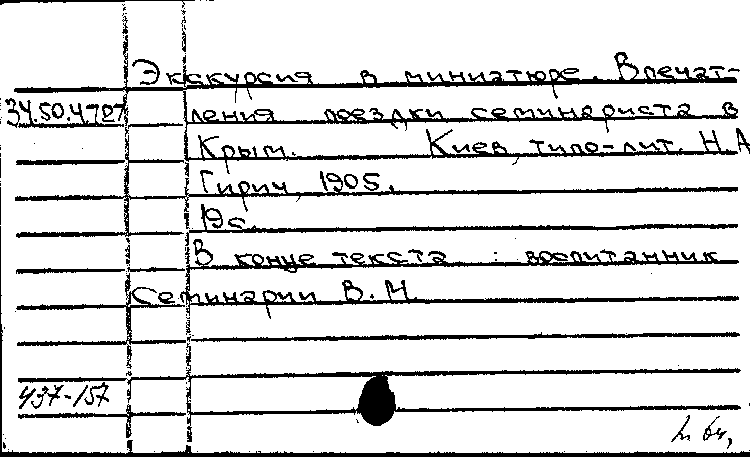 Экскурсия в миниатюре. Впечат-
34.50.4727 ления поездки семинариста в
Крым. Киев, типо-лит. Н.А
Гирич, 1905.
19с.
В конце текста : воспитанник
Семинарии В. М.
437-157